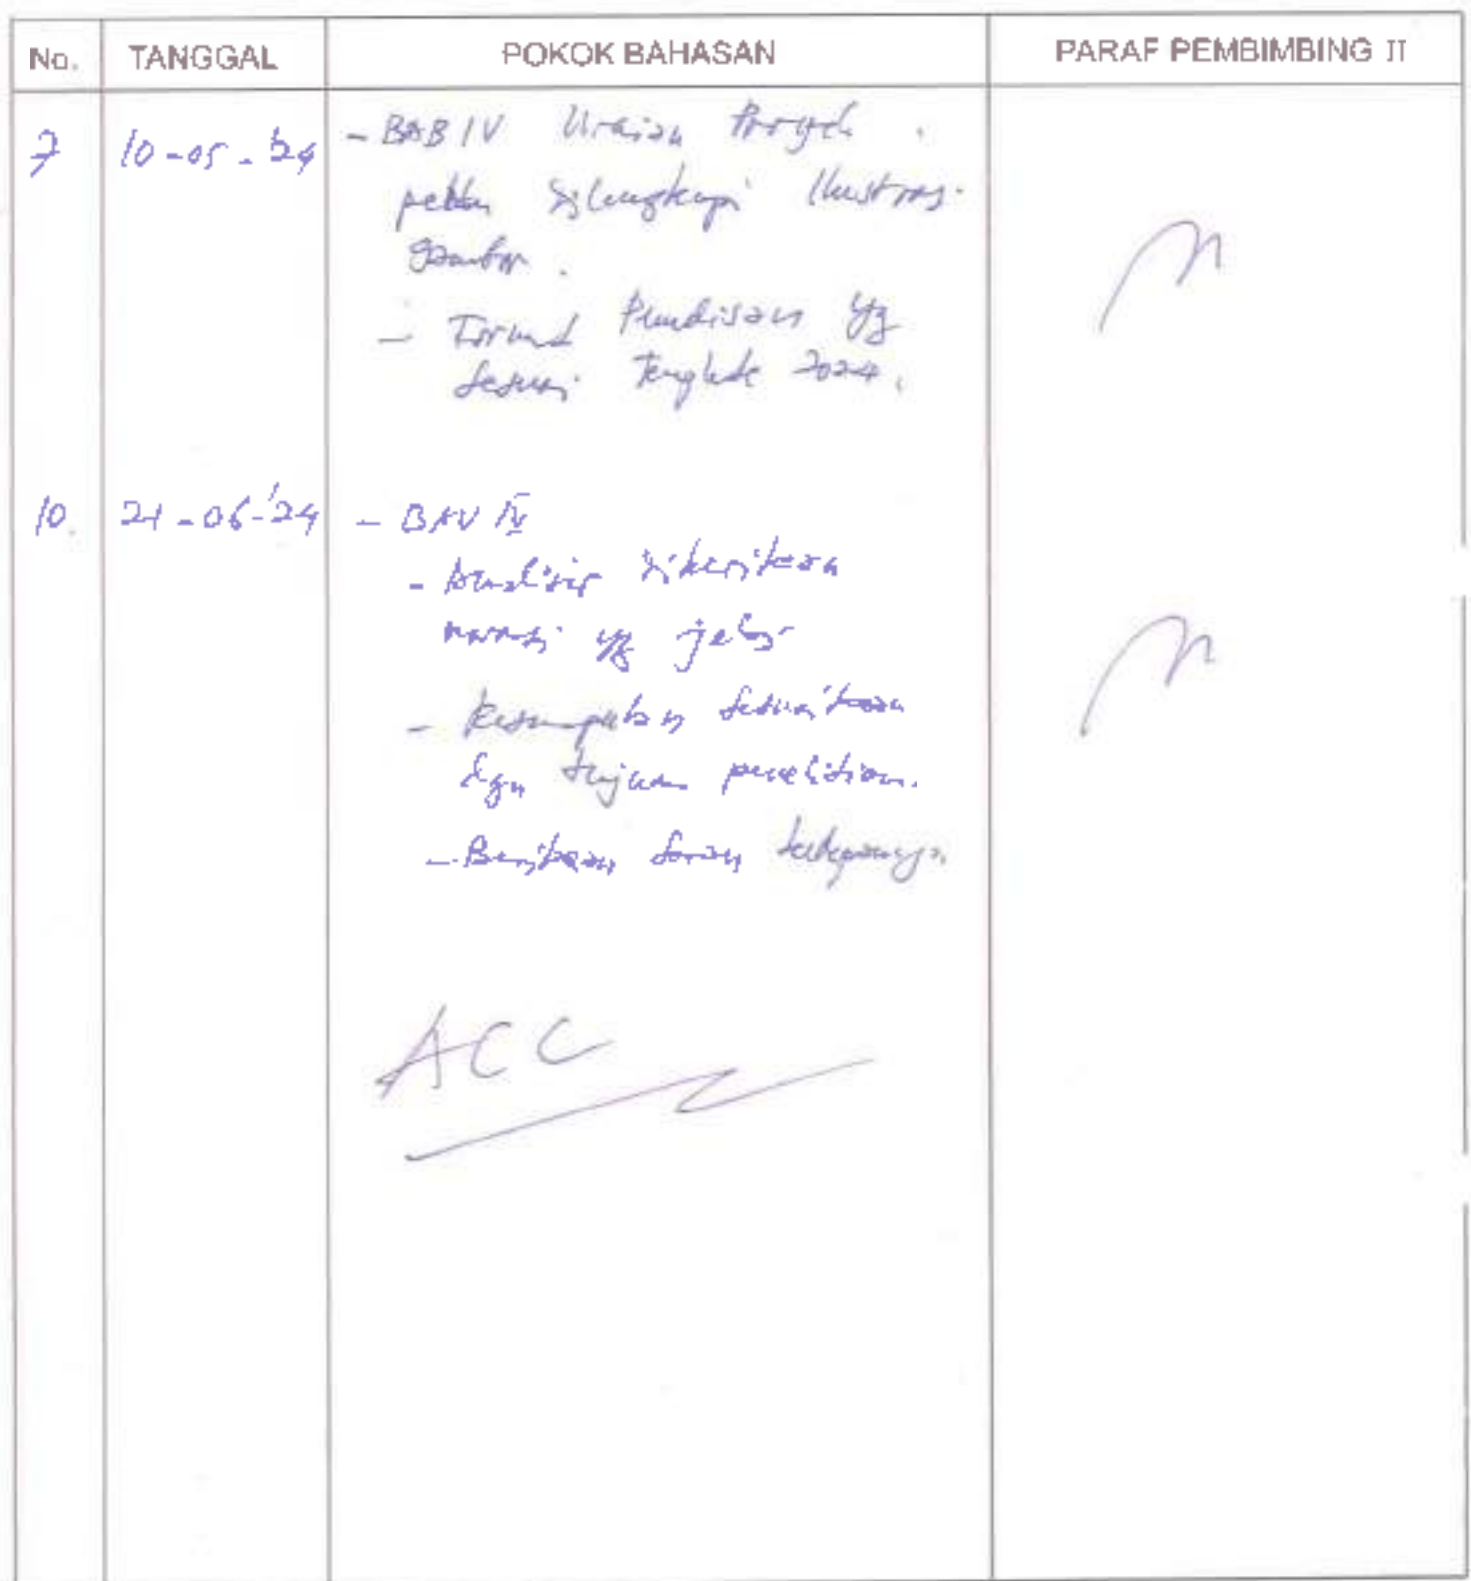 No. TANGGAL POKOK BAHASAN PARAF PEMBIMBING II
7 10-05-'24 - BAB IV Uraian Proyek.
perlu dilengkapi Ilustrasi
gambar.
- Format Penulisan yg
sesuai Template 2024.
10. 21-06-'24 - BAV IV
- Analisis diberikan
narasi yg jelas
- Kesimpulan sesuaikan
dgn tujuan penelitian.
- Berikan saran
ACC